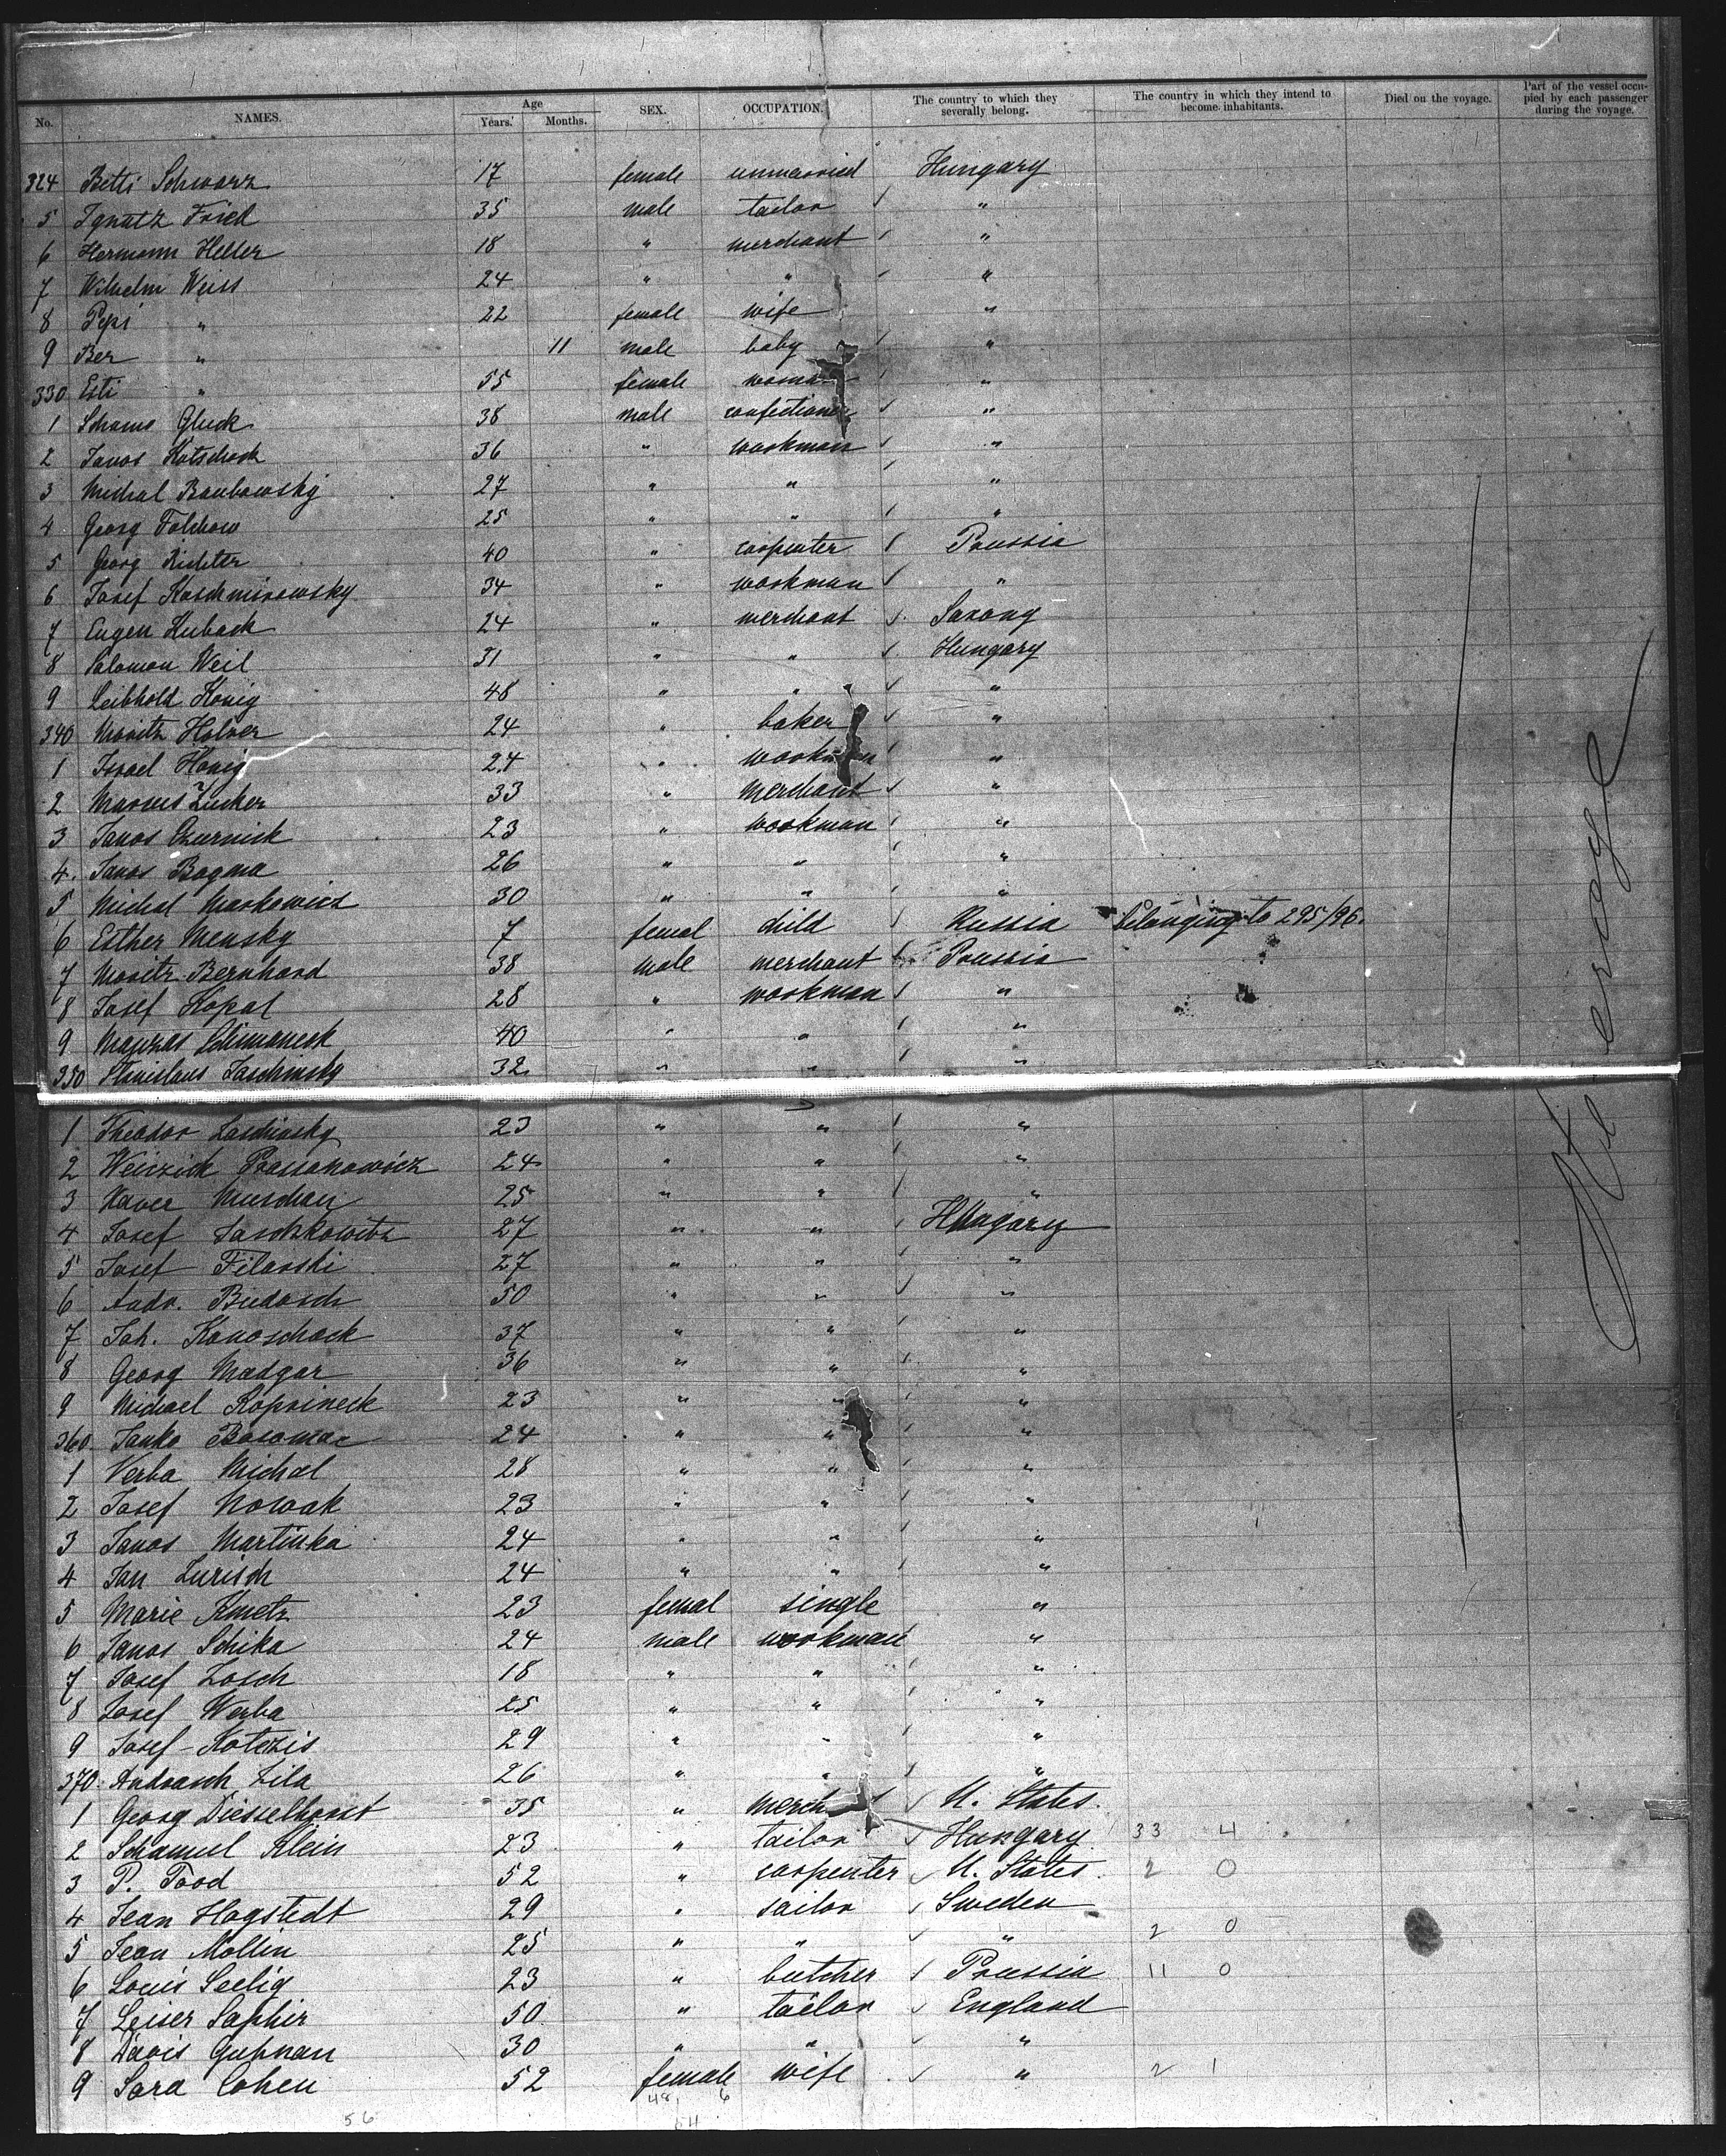 No. NAMES. Age Years. Months. SEX. OCCUPATION. The country to which they severally belong. The country in which they intend to become inhabitants. Died on the voyage. Part of the vessel occupied by each passenger during the voyage.
324 Betti Schwarz 17 female unmarried Hungary
5 Ignatz Fried 35 male tailor "
6 Hermann Heller 18 " merchant "
7 Wilhelm Weiss 24 " " "
8 Pepi " 22 female wife "
9 Ber " 11 male baby "
330 Esti " 55 female woman "
1 Schams Gluck 38 male confectioner "
2 Janos Kotschock 36 " workman "
3 Michal Baubowsky 27 " " "
4 Georg Folchow 25 " " "
5 Georg Richter 40 " carpenter Prussia
6 Josef Kaschmirowsky 34 " workman "
7 Eugen Kuback 24 " merchant Saxony
8 Salomon Weil 31 " " Hungary
9 Leibhold Konig 48 " " "
340 Moritz Holver 24 " baker "
1 Israel Honig 24 " workman "
2 Marcus Zucker 33 " merchant "
3 Janos Czurnick 23 " workman "
4 Janos Bogma 26 " " "
5 Michal Markowicz 30 " " "
6 Esther Mensky 7 femal child Russia belonging to 295/96.
7 Moritz Bernhard 38 male merchant Prussia
8 Josef Kopal 28 " workman "
9 Schimaneck 40 " " "
350 Stanislaus Jaschinsky 32 " " "
1 Theodor Laschinsky 23 " " "
2 24 " " "
3 Xaver Muschau 25 " " "
4 Josef Jaschkowitz 27 " " Hungary
5 Josef Filarski 27 " " "
6 Andr. Budosch 50 " " "
7 Joh. Kanoschack 37 " " "
8 Georg Madgar 36 " " "
9 Michael Koprineck 23 " " "
360 Janko 24 " " "
1 Verba Michal 28 " " "
2 Josef Nowak 23 " " "
3 Janos Martinka 24 " " "
4 Jan Zurisch 24 " " "
5 Marie Kmetz 23 femal single "
6 Janos Schika 24 male workman "
7 Josef Zosch 18 " " "
8 Josef Werba 25 " " "
9 Josef Kotezis 29 " " "
370 Andrasch Zila 26 " " "
1 Georg Diesselhorst 35 " merch U. States
2 Schamuel Klein 23 " tailor Hungary 33 4
3 P. Food 52 " carpenter U. States 2 0
4 Jean Hagstedt 29 " sailor Sweden
5 Jean Mollin 25 " " " 2 0
6 Louis Seelig 23 " butcher Prussia 11 0
7 Leiser Saphir 50 " tailor England
8 Davis Gupnan 30 " " "
9 Sara Cohen 52 female wife " 2 1
56 48 6
54
Steerage